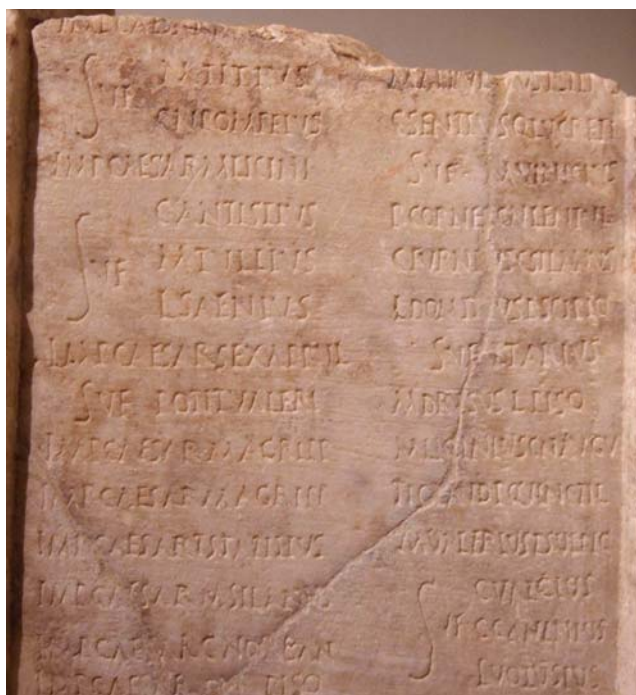 M TITIVS
SVF
CN POMPEIVS
IMP CAESAR M LICINI
C ANTISTIVS
SVF M TVLLIVS
L SAENIVS
IMP CAESAR SEX APPVL
SVF POTIT VALERI
IMP CAESAR M AGRIPP
IMP CAESAR M AGRIPP
IMP CAESAR T STATILIVS
IMP CAESAR M SILANVS
IMP CAESAR C NORBAN
IMP CAESAR CN PISO
C SENTIVS Q LVCRET
SVF M VINVCIVS
P CORNEL CN LENTVL
C FVRNIVS C SILANVS
L DOMITIVS P SCIPIO
SVF L TARIVS
M DRVSVS L PISO
M LICINIVS CN AVGV
TI CLAVD P QVINCTIL
M VALERIVS P SVLPIC
C VALGIVS
SVF C CANINIVS